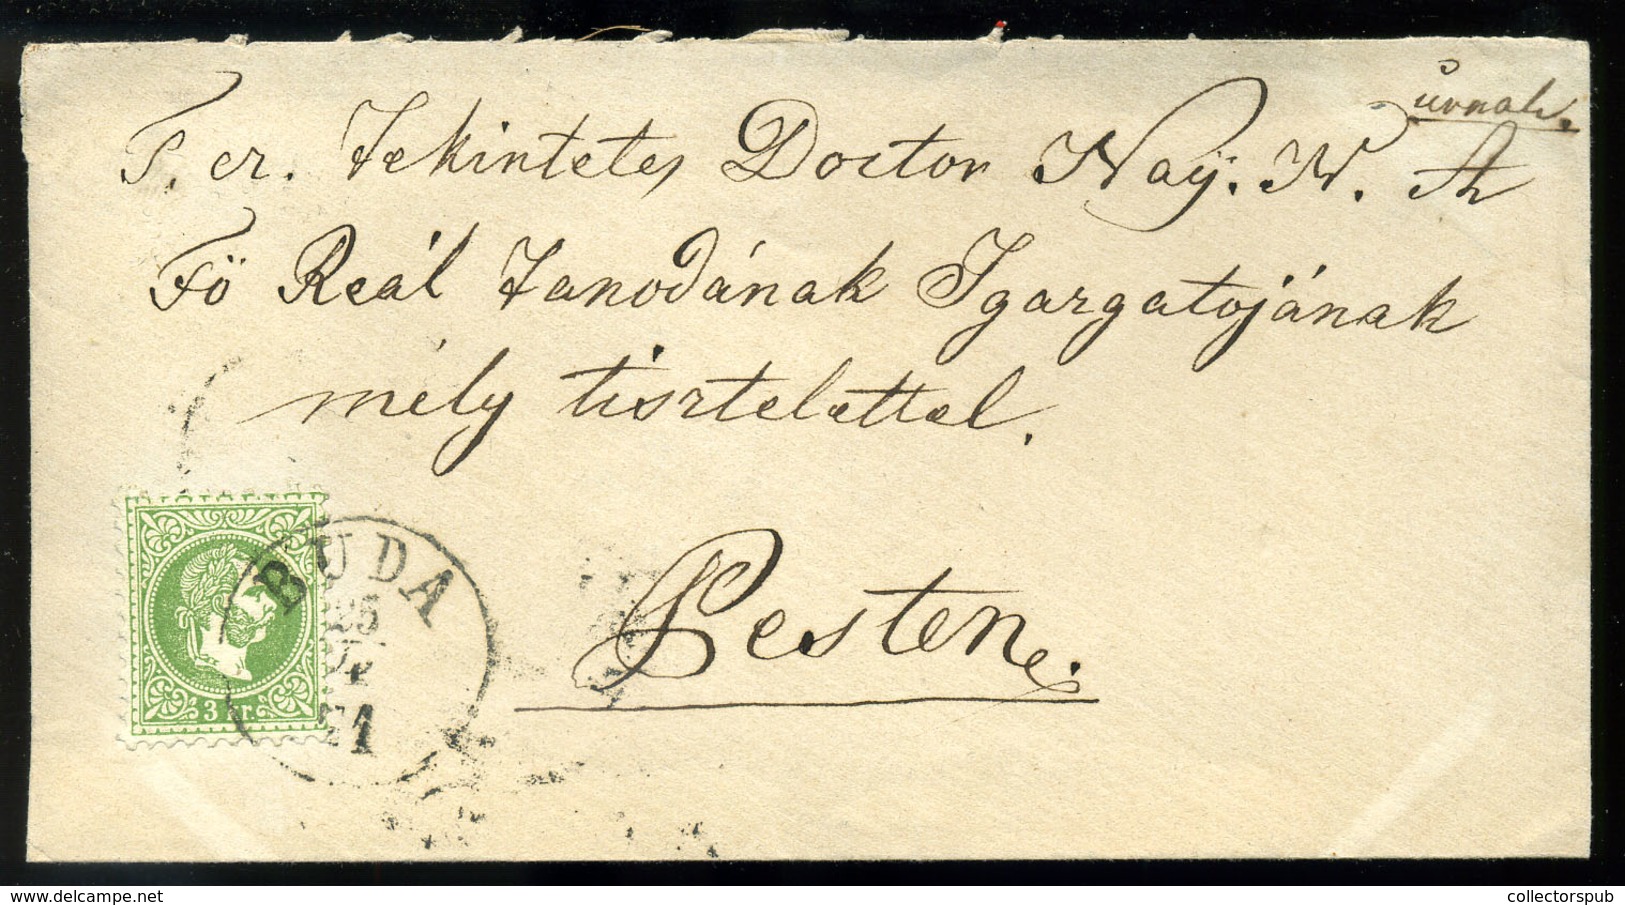 T. cz. Tekintetes Doctor Nay. N.
úrnak.
Fö Reál Tanodának Igazgatojának
mély tisztelettel.
Pesten.
BUDA
25
71
3 kr.
www.delcampe.net
collectorspub